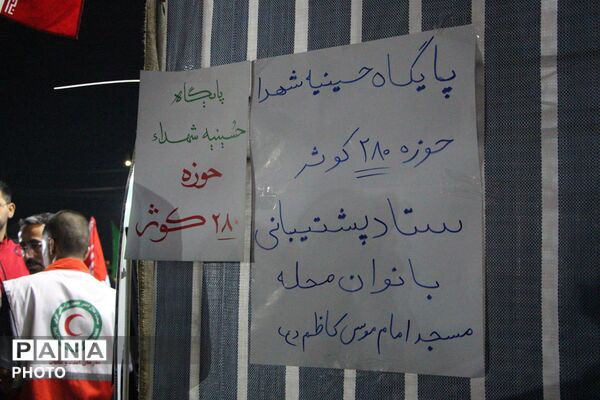 پایگاه حسینیه شهدا
حوزه ۲۸۰ کوثر
ستاد پشتیبانی
بانوان محله
مسجد امام موسی کاظم (ع)
پایگاه
حسینیه شهداء
حوزه
۲۸۰ کوثر
PANA
PHOTO